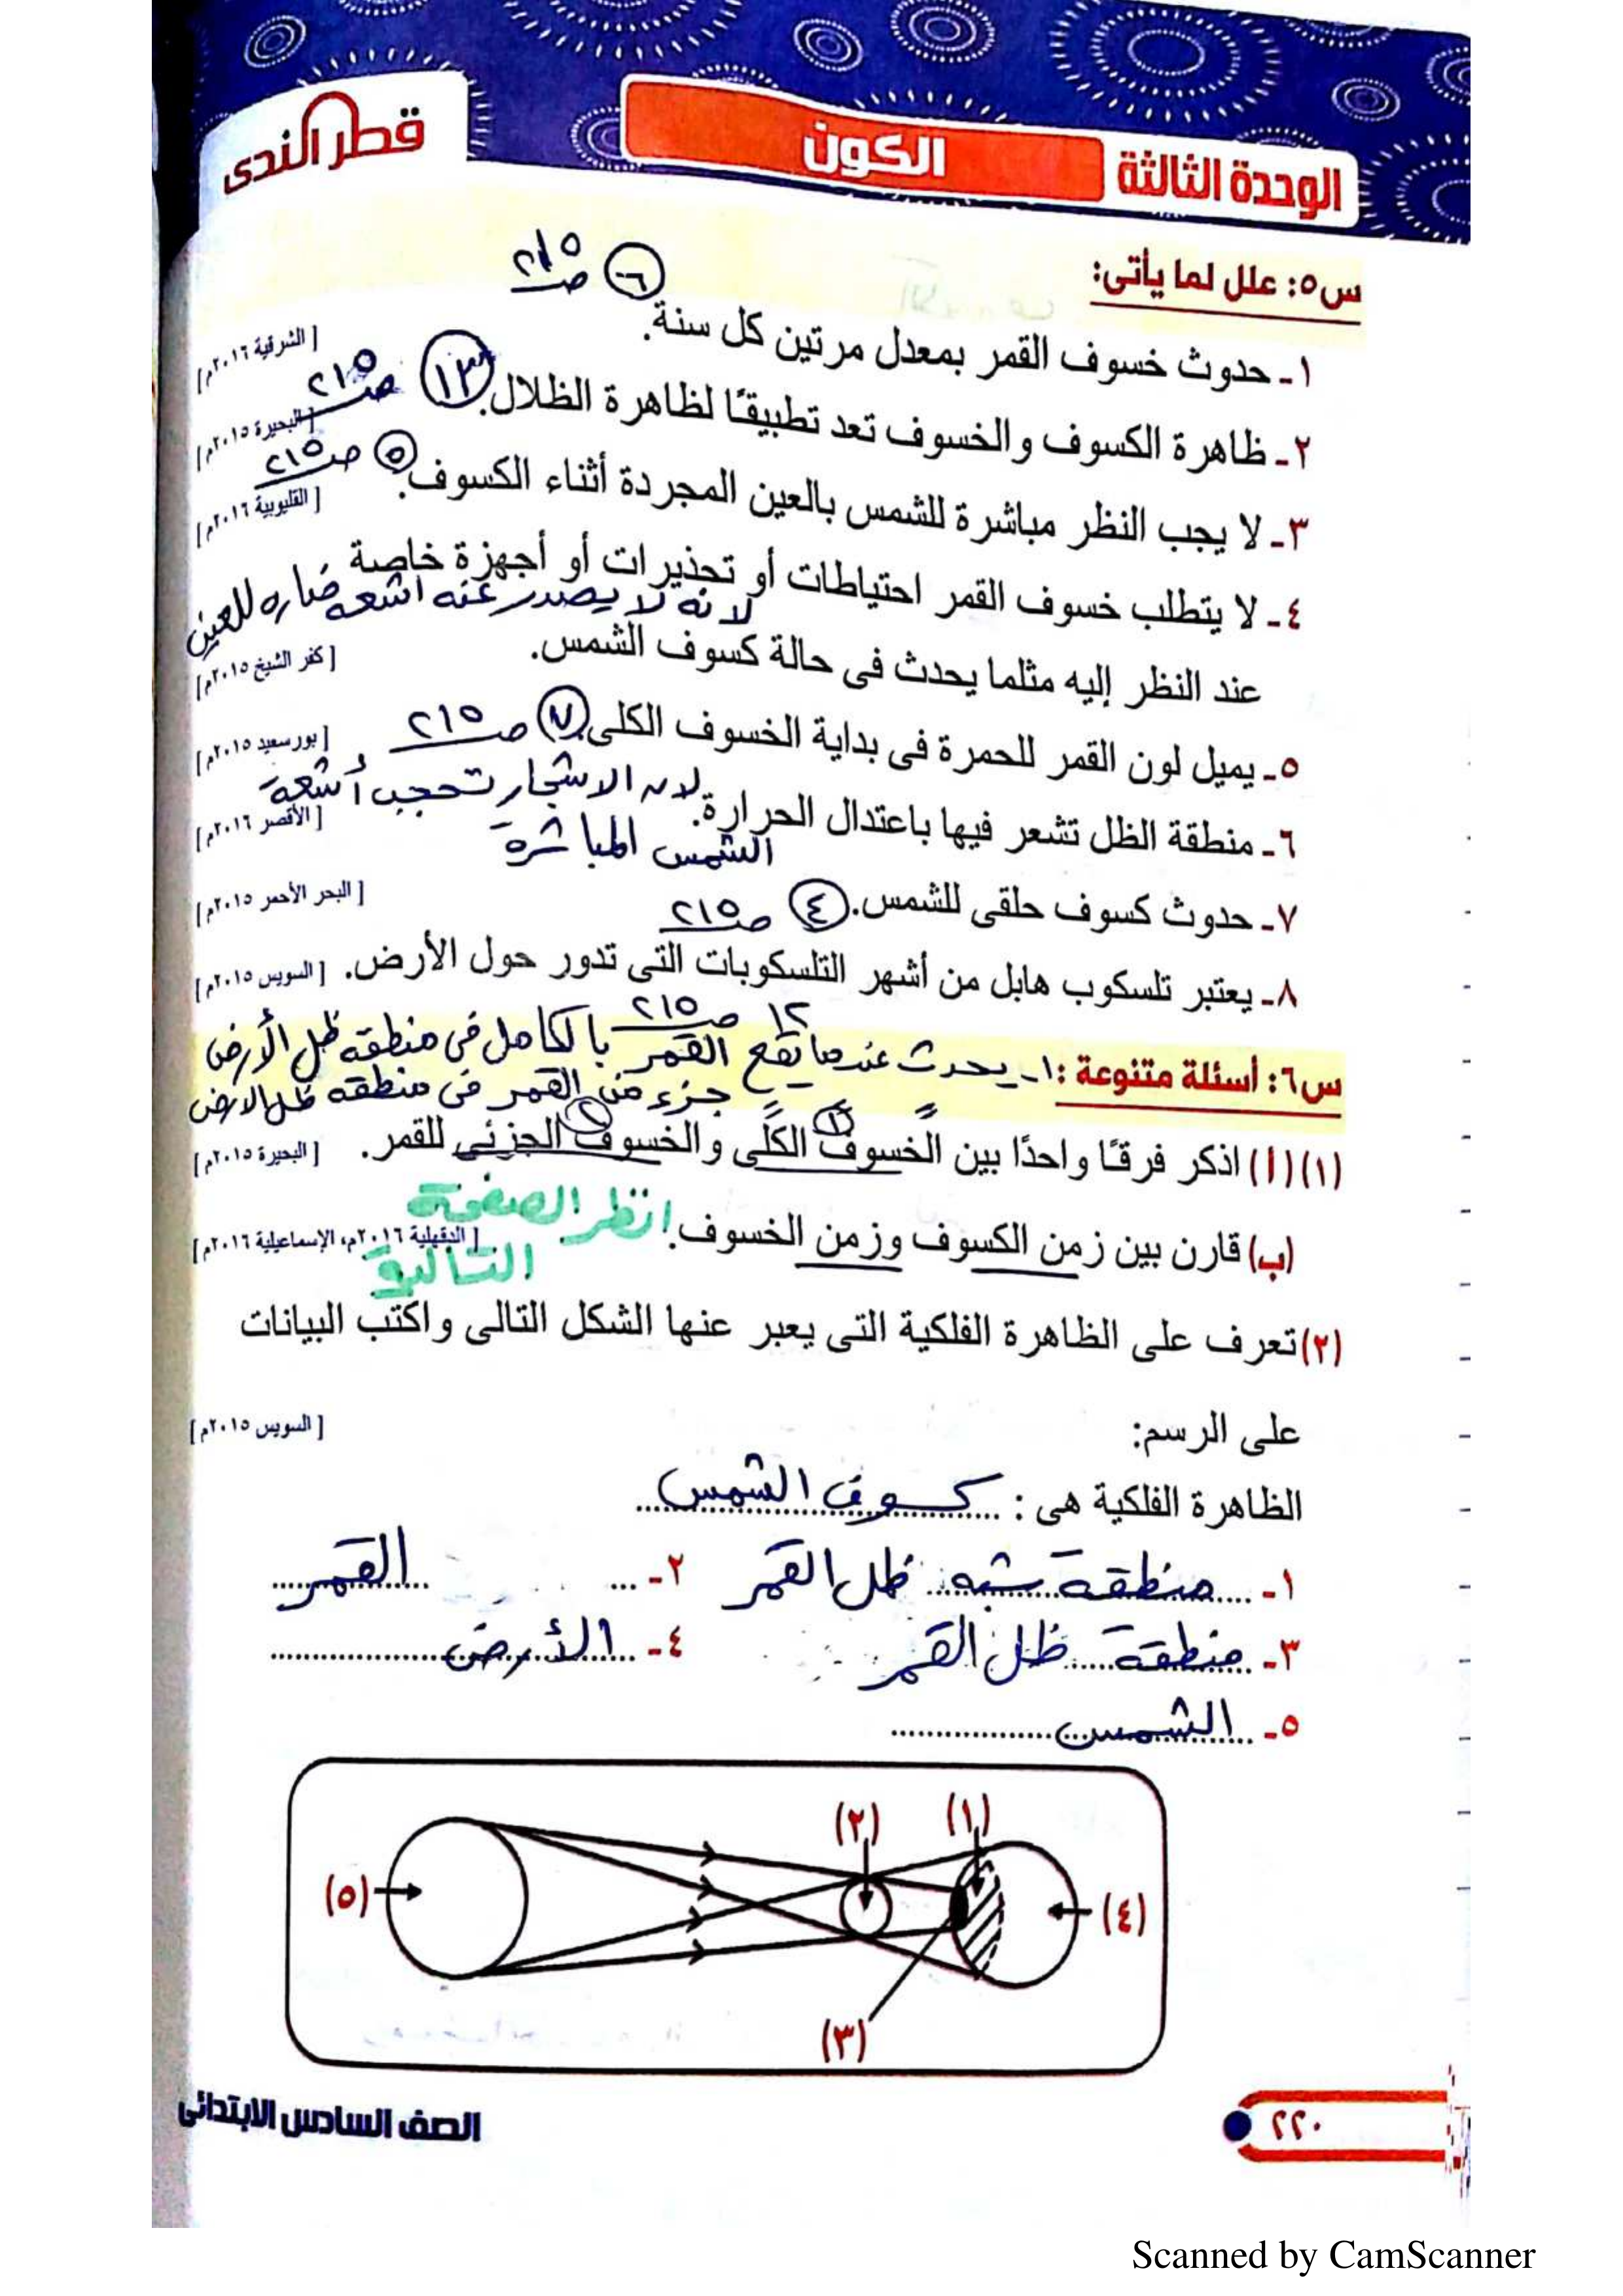 قطر الندى
الوحدة الثالثة الكون
س٥: علل لما يأتى:
١- حدوث خسوف القمر بمعدل مرتين كل سنة. ٦ ص ٢١٥ [الشرقية ٢٠١٦م]
٢- ظاهرة الكسوف والخسوف تعد تطبيقًا لظاهرة الظلال. ١٣ ص ٢١٥ [البحيرة ٢٠١٥م]
٣- لا يجب النظر مباشرة للشمس بالعين المجردة أثناء الكسوف. ٥ ص ٢١٥ [القليوبية ٢٠١٦م]
٤- لا يتطلب خسوف القمر احتياطات أو تحذيرات أو أجهزة خاصة
لانه لا يصدر عنه اشعه ضاره للعين
عند النظر إليه مثلما يحدث فى حالة كسوف الشمس. [كفر الشيخ ٢٠١٥م]
٥- يميل لون القمر للحمرة فى بداية الخسوف الكلى. ٧ ص ٢١٥ [بورسعيد ٢٠١٥م]
٦- منطقة الظل تشعر فيها باعتدال الحرارة. لان الاشجار تحجب أشعة [الأقصر ٢٠١٦م]
الشمس المباشرة
٧- حدوث كسوف حلقى للشمس. ٤ ص ٢١٥ [البحر الأحمر ٢٠١٥م]
٨- يعتبر تلسكوب هابل من أشهر التلسكوبات التى تدور حول الأرض. [السويس ٢٠١٥م]
١٢ ص ٢١٥
س٦: أسئلة متنوعة: ١- يحدث عندما يقع القمر بالكامل فى منطقه ظل الأرض
٢ جزء من القمر فى منطقه ظل الارض
(١)(أ) اذكر فرقًا واحدًا بين الخسوف الكلى والخسوف الجزئى للقمر. [البحيرة ٢٠١٥م]
(ب) قارن بين زمن الكسوف وزمن الخسوف. انظر الصفحة [الدقهلية ٢٠١٦م، الإسماعيلية ٢٠١٦م]
التالية
(٢) تعرف على الظاهرة الفلكية التى يعبر عنها الشكل التالى واكتب البيانات
على الرسم: [السويس ٢٠١٥م]
الظاهرة الفلكية هى: كسوف الشمس
١- منطقة شبه ظل القمر ٢- القمر
٣- منطقة ظل القمر ٤- الأرض
٥- الشمس
(١) (٢)
(٥) (٤)
(٣)
٢٢٠ الصف السادس الابتدائى
Scanned by CamScanner